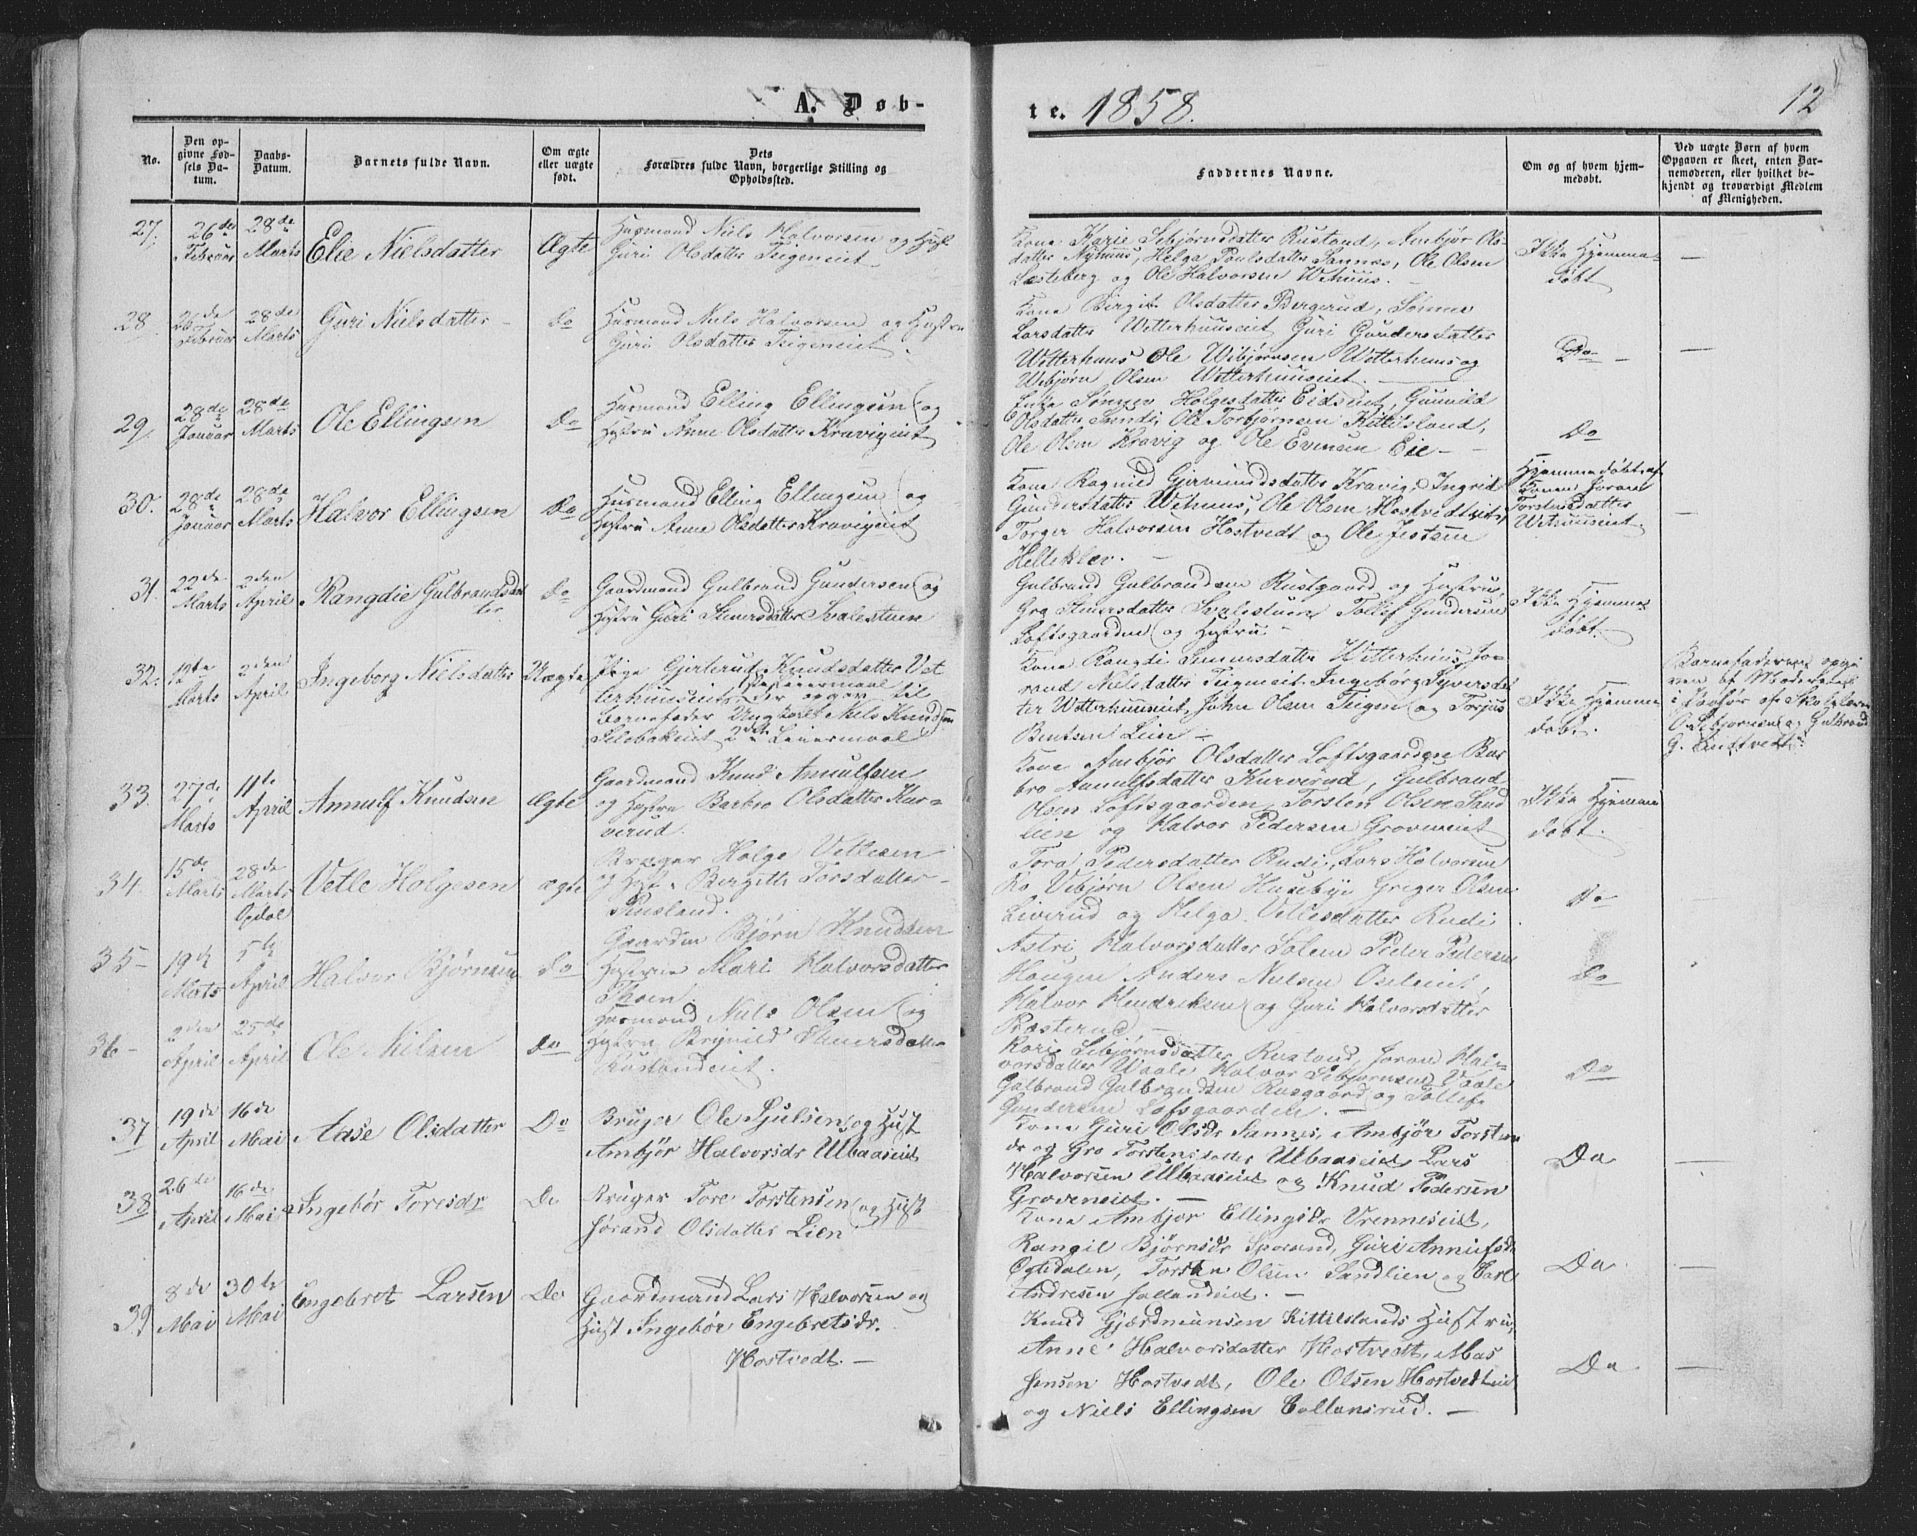 A. Døb-
te. 1858.
12
No.
Den op-
givne Fød-
sels Da-
tum.
Daabs-
Datum.
Barnets fulde Navn.
Om ægte
eller uægte
født.
Dets
Forældres fulde Navn, borgerlige Stilling og
Opholdssted.
Faddernes Navne.
Om og af hvem hjem-
medøbt.
Ved uægte Børn af hvem
Opgaven er skeet, enten Bar-
nemoderen, eller hvilket be-
kjendt og troværdigt Medlem
af Menigheden.
27.
26de
Februar
28de
Marts
Elie Nielsdatter
Ægte
Husmand Niels Halvorsen og Hust
Guri Olsdatter Teigeneiet
Kone Karie Sebjørnsdatter Rustand, Ambjør Ols-
datter Nymuus, Helga Poulsdatter Sannes, Ole Olsen
Lasteberg og Ole Halvorsen Wehuus.
Ikke Hjemme-
døbt
28
26de
Februar
28de
Marts
Guri Nielsdatter
Do
Husmand Niels Halvorsen og Hustru
Guri Olsdatter Teigeneiet.
Kone Birgit Olsdatter Bergerud, Sønnev
Larsdatter Wetterhuuseiet Guri Gundersdatter
Wetterhuus Ole Wibjørnsen Wetterhuus og
Webjørn Olsen Wetterhuuseiet.
Do
29
28de
Januar
28de
Marts
Ole Ellingsen
Do
Husmand Elling Ellingsen og
Hustru Anne Olsdatter Kravigeiet
Enke Sønnev Holgesdatter Eidseiet, Gunild
Olsdatter Sundi, Ole Torbjørnsen Kittilsland,
Ole Olsen Kravig og Ole Evensen Eie
Do
30.
28de
Januar
28de
Marts
Halvor Ellingsen
Do
Husmand Elling Ellingsen og
Hustru Anne Olsdatter Kravigeiet
Kone Ragnild Gjermundsdatter Kravig, Ingrid
Gundersdatter Wehuus, Ole Olsen Hostvedteiet,
Torger Halvorsen Hostvedt og Ole Jestsen
Helleklev.
Hjemmedøbt af
Konen Joran
Torstensdatter
Wehuuseiet
31.
22de
Marts
2den
April
Rangdie Gulbrandsdat
ter
Do
Gaardmand Gulbrand Gundersen og
Hustru Guri Steenersdatter Svalestuen
Gulbrand Gulbrandsen Rustgaard og Hustru,
Gro Steenersdatter Svalestuen Tollef Gundersen
Loftsgaarden og Hustru
Ikke Hjemme-
døbt.
32.
12te
Marts
2den
April
Ingeborg Nielsdatter
Uægte
Pige Gjertrud Knudsdatter Vet
terhuuseiet, der opgav til
Barnefader Ungkarl Niels Knudsen
2det Leiermaal
Kone Rangdi Steenersdatter Wetterhuus, Jo-
rand Nielsdatter Teigeneiet, Ingeborg Syversdat
ter Wetterhuuseiet, John Olsen Teigen og Torjus
Bentsen Lien
Ikke Hjemme
døbt.
Barnefaderen opgi
ven af Moderen
i Overvær af Skolelærer
O. Sebjørnsen og Gulbrand
33
27de
Marts
11te
April
Annulf Knudsen
Ægte
Gaardmand Knud Annulfsen
og Hustru Barbro Olsdatter Kar-
verud.
Kone Ambjør Olsdatter Loftsgaarden Bar
bro Annulfsdatter Kurverud, Gulbrand
Olsen Loftsgaarden, Torsten Olsen Sand
lien og Halvor Pedersen Groveneiet
Ikke Hjemme
døbt.
34.
15de
Marts
28de
Marts
Opdal
Vetle Holgesen
ægte
Bruger Holge Vetlesen
og Hust. Bergith Torsdatter
Rusland.
Tora Pedersdatter Rudi, Lars Halvorsen
Ro Vebjørn Olsen Husebye Greger Olsen
Liverud og Helga Vetlesdatter Rudi
Do
35
19de
Marts
5te
April
Halvor Bjørnsen
Do
Gaardm Bjørn Knudsen
Hustrue Mari Halvorsdatter
Thoen
Astri Halvorsdatter Solem Peder Pedersen
Haugen Anders Nielsen Oseleiet,
Halvor Hendriksen og Guri Halvorsdatter
Rosterud
Do
36
2den
April
25de
April
Ole Nilsen
Do
Husmand Nils Olsen og
Hustru Brynild Steenersdatter
Rustandeiet.
Kari Sebjørnsdatter Rustand, Joran Hal-
vorsdatter Vaale Halvor Sebjørnsen Vaale
Gulbrand Gulbrandsen Rusgaard og Tollef
Gundersen Lofsgaarden.
Do
37
19de
April
16de
Mai
Aase Olsdatter
Do
Bruger Ole Sjulsen og Hust
Ambjør Halvorsdr Ulbaaseiet
Kone Guri Olsdr Sannes, Ambjør Torsten
dr og Gro Torstensdatter Ulbaaseiet, Lars
Halvorsen Ulbaaseiet og Knud Pedersen
Groveneiet.
Do
38
26de
April
16de
Mai
Ingebør Toresdr
Do
Bruger Tore Torstensen og Hust
Jørand Olsdatter Lien
Kone Ambjør Ellingsdr Vrenneseiet,
Rangil Bjørnsdr Sporand, Guri Annulfsdr
Ogledalen, Torsten Olsen Sandlien og Carl
Andresen
Do
39
8de
Mai
30te
Mai
Engebret Larsen
Do
Gaardmand Lars Halvorsen og
Hust Ingebør Engebretsdr.
Hostvedt.
Knud Gjærdmunsen Kittilslands Hustru,
Anne Halvorsdatter Hostvedt, Mas
Jensen Hostvedt, Ole Olsen Hostvedteiet
og Niels Ellingsen Collansrud.
Do